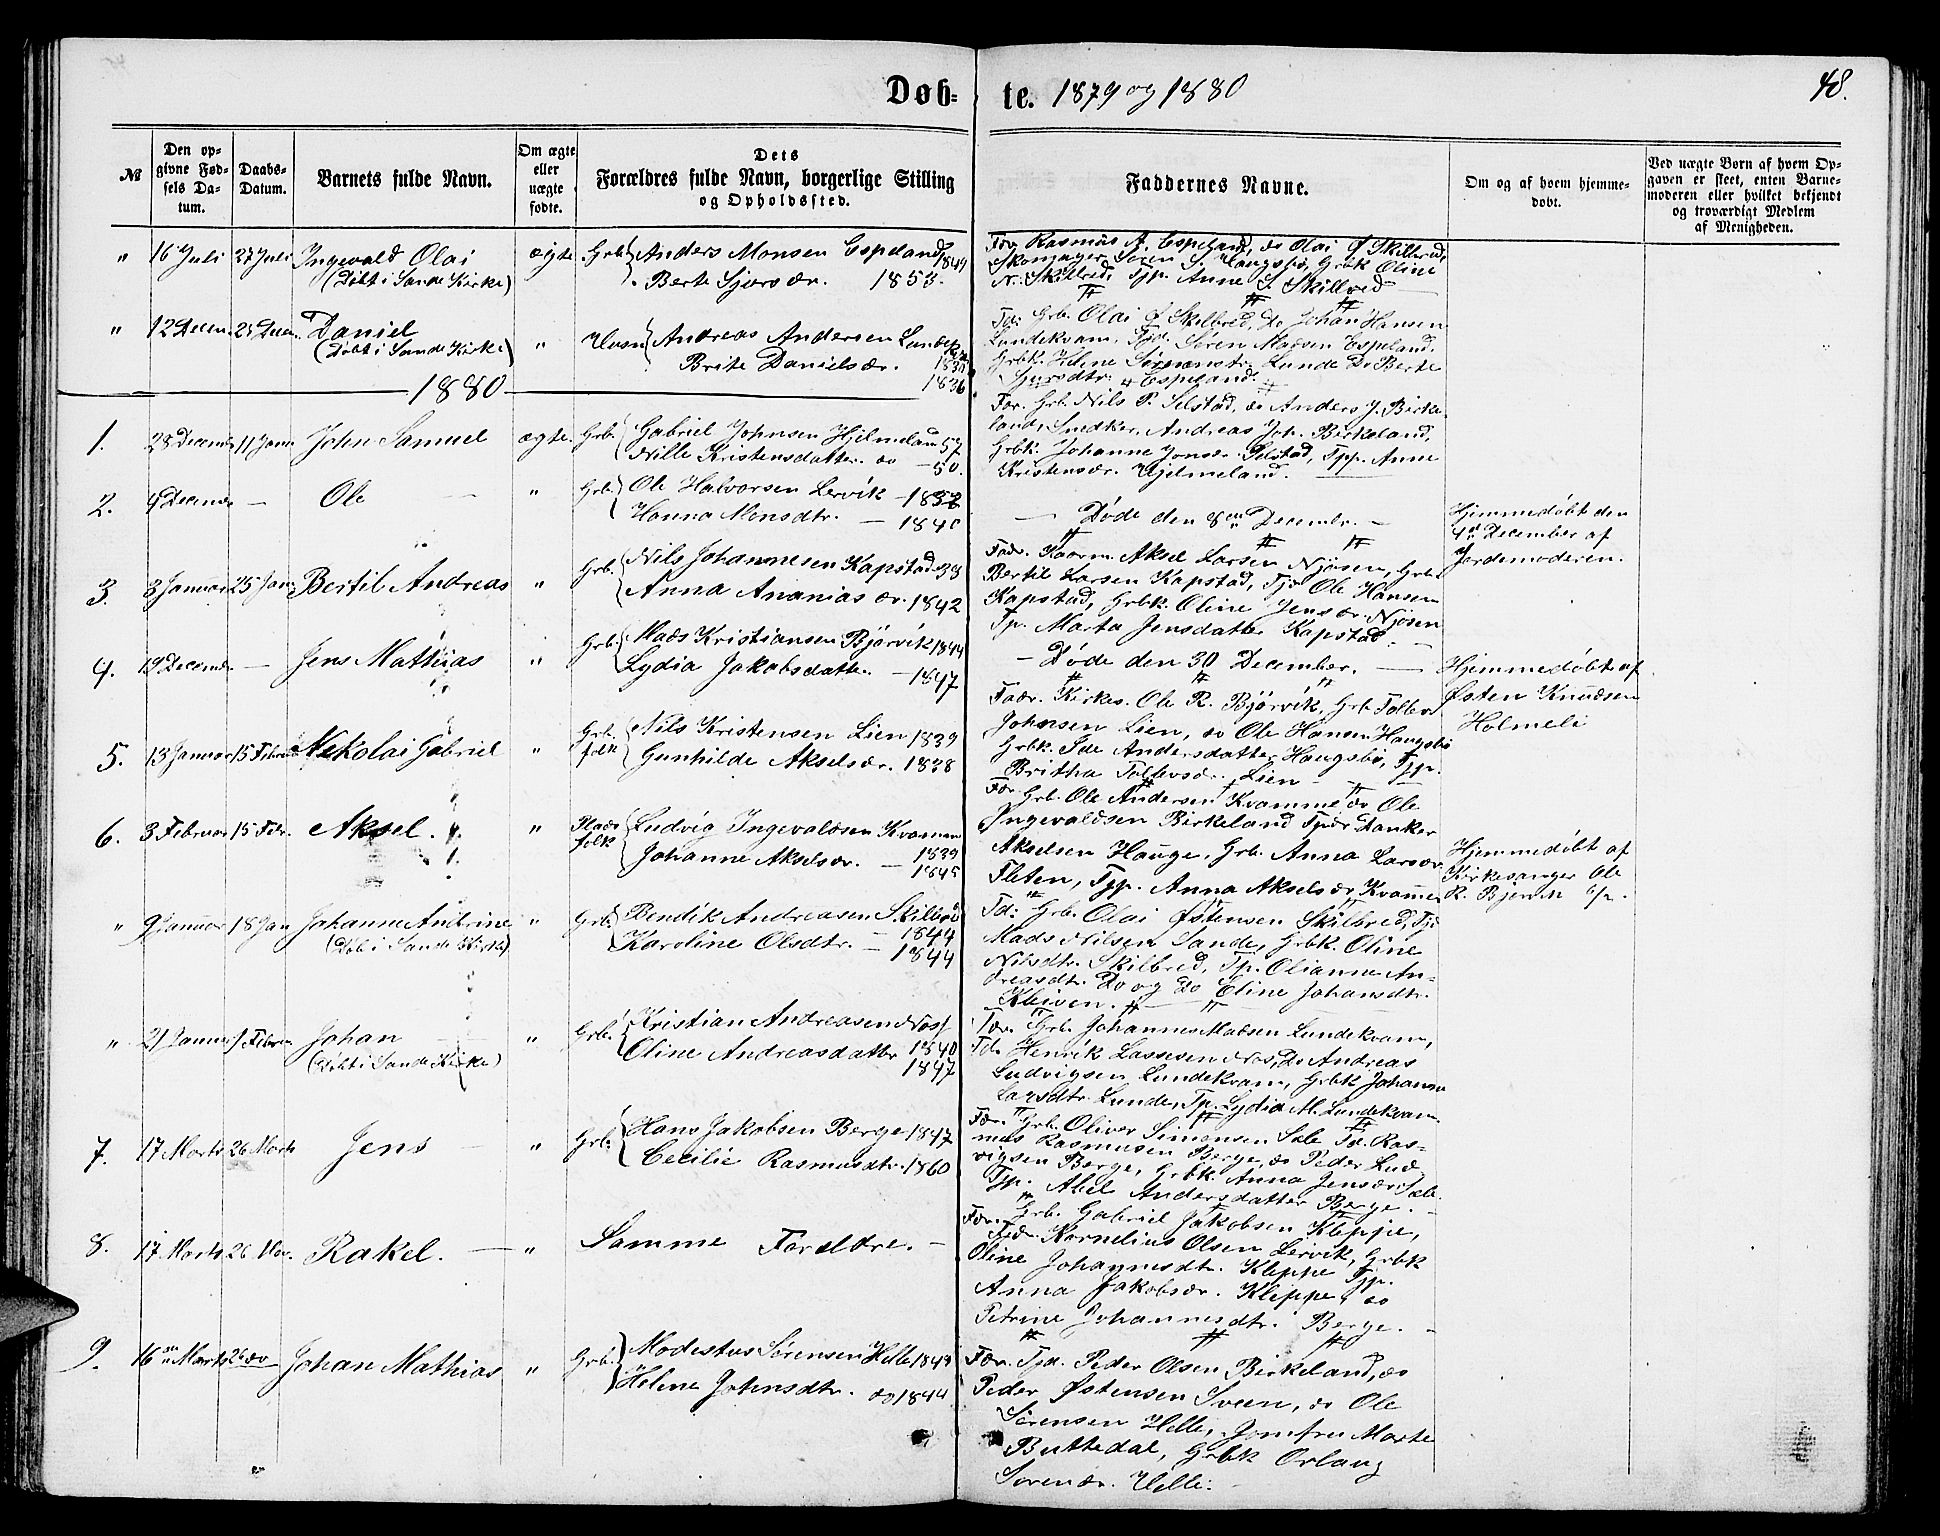 Døb- te. 1879 og 1880
48.
№
Den opgivne Fødsels Datum.
Daabs-Datum.
Barnets fulde Navn.
Om ægte eller uægte fødte.
Dets Forældres fulde Navn, borgerlige Stilling og Opholdssted.
Faddernes Navne.
Om og af hvem hjemmedøbt.
Ved uægte Børn af hvem Opgaven er skeet, enten Barnemoderen eller hvilket bekjendt og troværdigt Medlem af Menigheden.
" 16 Juli 27 Juli Ingevald Olai ægte Grb. Anders Monsen Espeland 1849
(Døbt i Sande Kirke) Berte Sjursdr. 1853.
Rasmus A. Espeland, do Olai Skilbred,
Søren S. Haugsbø, Grbk Oline
N. Skilbred, Tjp. Anne S Skilbred
" 12 Decem. 25 Decem. Daniel " Husm Andreas Andersen Lundek
(Døbt i Sande Kirke) Brite Danielsdr.
1836
Fd: Grb. Olai Skilbred, do Johan Hansen
Lundekvam, Tjd. Søren Madsen Espeland,
Grbk. Helene Lunde Do Berte
Sjursdtr. Espeland.
1880
1. 28 Decembr 11 Janr John Samuel ægte. Grb. Gabriel Johnsen Hjelmeland 57
Nille Kristensdatter do 50.
Fær. Grb. Nils P. Selstad, do Anders J. Birke-
land, Snedker Andreas Joh. Birkeland,
Grbk. Johanne Jonsdr. Selstad, Tjp. Anne
Kristensdr. Hjelmeland.
2. 4 Decembr — Ole " Grb. Ole Halvorsen Lervik — 1838
Hanna Monsdtr. — 1840
— Døde den 8de Decembr. —
Hjemmedøbt den
4de December af
Jordemoderen.
3. 3 Januar 25 Jan Bertil Andreas " Grb. Nils Johannesen Kapstad 38
Anna Ananias dr. 1842
Fadr. Aksel Larsen Njøsen, Grb.
Bertil Larsen Kapstad, Tjd Ole Hansen
Kapstad, Grbk. Oline Jensdr. Njøsen
Tp. Marta Jensdatter Kapstad.
4. 19 Decembr — Jens Mathias " Grb. Mads Kristiansen Bjørvik 1844
Lydia Jakobsdatter — 1847
— Døde den 30 December. —
Hjemmedøbt af
Østen Knudsen
Holmeli
5. 13 Januar 15 Februar Nikolai Gabriel " Grb. folk Nils Kristensen Lien 1839
Gunhilde Akselsdr. 1838
Fadr. Kirkes. Ole R. Bjørvik, Grb Tollev
Johnsen Lien, do Ole Hansen Haugsbø
Grbk. Ide Andersdatter Haugsbø, Tjp.
Britha Tollevsdr. Lien —
6. 3 Februar 15 Febr. Aksel. " Plads folk Ludvig Ingevaldsen Kvamme
1839
Johanne Akselsdr. — 1845
Fær. Grb. Ole Andersen Kvamme do Ole
Ingevaldsen Birkeland Danker
Akselsen Hauge, Grb. Anna Larsdr
Fleten, Tjp. Anna Akselsdr Kvamme
Hjemmedøbt af
Kirkesanger Ole
R. Bjørvik
" 9 Januar 18 Jan Johanne Andrine " Grb. Bendik Andreasen Skilbred
(Døbt i Sande Kirke) — 1844
Karoline Olsdtr. — 1844
Fd: Grb. Olai Østensen Skilbred, Tjd
Mads Nilsen Sande, Grbk. Oline
Nilsdtr. Skilbred, Tp. Olianne An-
dreasdtr. Do og Do Eline Johansdtr.
Kleiven.
" 21 Januar 1 Februar Johan " Grb. Kristian Andreasen Nos
(Døbt i Sande Kirke) 1840
Oline Andreasdatter 1847
Fær. Grb. Johannes Madsen Lundekvam,
Henrik Lassesen Nos, Do Andreas
Ludvigsen Lundekvam, Grbk Johanne
Larsdtr. Lunde, Tp. Lydia M. Lundekvam
7. 17 Marts 26 Marts Jens — " Grb. Hans Jakobsen Berge 1847
Cecilie Rasmusdtr. 1860
Fær. Grb. Oliver Simonsen Sæle Tjd. Ras-
mus Rasmusen Berge, do Peder Lud-
vigsen Berge, Grbk. Anna Jensdr Sæle
Tjp. Abel Andersdatter Berge.
8. 17 Marts 26 Mar. Rakel. — " Samme Forældre. —
Fær. Grb. Gabriel Jakobsen Kleppe,
Tjd. Kornelius Olsen Lervik, Grbk
Oline Johannesdtr. Kleppe Tjp.
Anna Jakobsdr. Kleppe, do
Petrine Johannesdtr. Berge.
9. 16 Marts 26 do Johan Mathias " Grb. Modestus Sørensen Helle 1849
Helene Johnsdtr. do 1844
Fær. Tjd. Peder Olsen Birkeland, do
Peder Østensen Sveen, do Ole
Sørensen Helle, Jomfru Marte
Buttedal, Grbk Orlaug
Sørensdr. Helle.